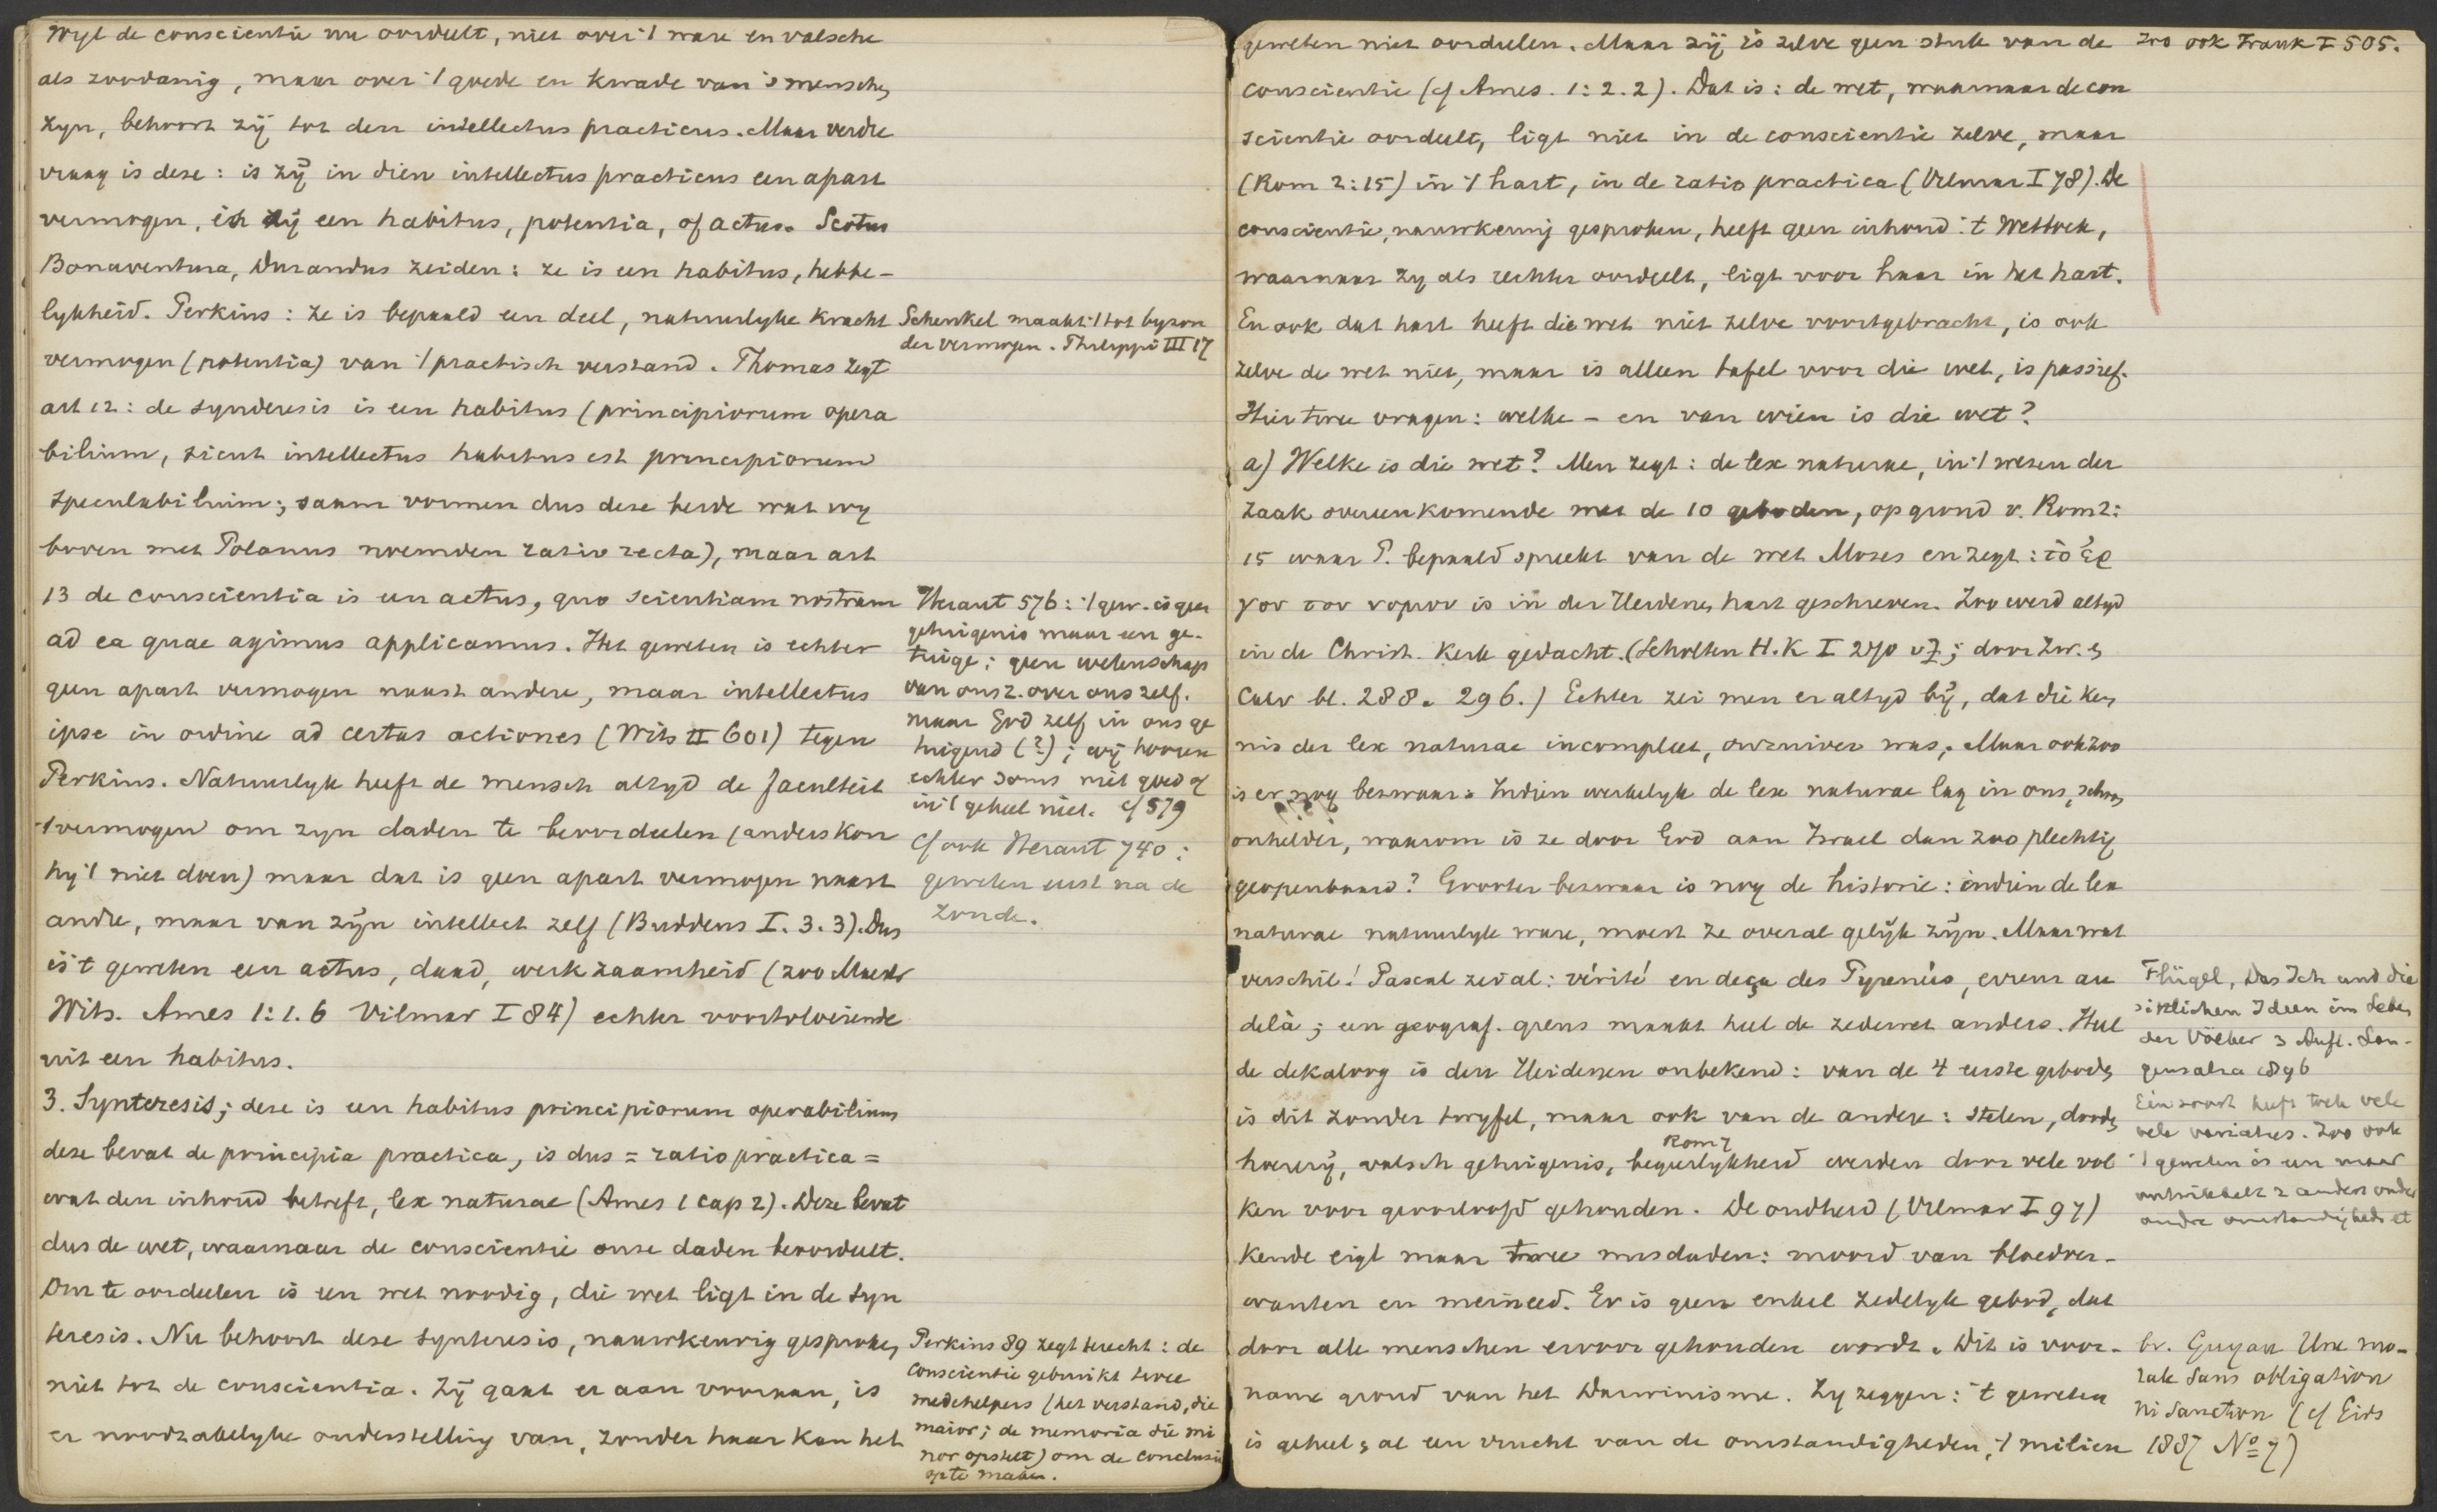 Wyl de conscientie nu oordeelt, niet over 't ware en valsche
als zoodanig, maar over 't goede en kwade van 's menschen
zyn, behoort zij tot den intellectus practicus. Maar verdre
vraag is deze: is zij in dien intellectus practicus een apart
vermogen, is zij een habitus, potentia, of actus. Scotus
Bonaventura, Durandus zeiden: ze is een habitus, hebbe-
lykheid. Perkins: ze is bepaald een deel, natuurlyke kracht
vermogen (potentia) van 't practisch verstand. Thomas zegt
art 12: de synderesis is een habitus (principiorum opera
bilium, sicut intellectus habitus est principiorum
speculabilium; saam vormen dus deze beide wat wy
boven met Polanus noemden ratio recta), maar art
13 de conscientia is een actus, quo scientiam nostram
ad ea quae agimus applicamus. Het geweten is echter
geen apart vermogen naast andere, maar intellectus
ipse in ordine ad certas actiones (Wits II 601) tegen
Perkins. Natuurlyk heeft de mensch altyd de faculteit
't vermogen om zyn daden te beoordeelen (anders kon
hy 't niet doen) maar dat is geen apart vermogen naast
andre, maar van zijn intellect zelf (Buddeus I. 3. 3). Dus
is 't geweten een actus, daad, werkzaamheid (zoo Maestr
Wits. Ames 1:1.6 Vilmar I 84) echter voortvloeiende
uit een habitus.
3. Synteresis; deze is een habitus principiorum operabilium
deze bevat de principia practica, is dus = ratio practica =
wat den inhoud betreft, lex naturae (Ames 1 cap 2). Deze bevat
dus de wet, waarnaar de conscientie onze daden beoordeelt.
Om te oordeelen is een wet noodig, die wet ligt in de syn
teresis. Nu behoort deze synteresis, nauwkeurig gesproken,
niet tot de conscientia. Zij gaat er aan vooraan, is
er noodzakelyke onderstelling van, zonder haar kan het
Schenkel maakt 't tot byzon
der vermogen. Philippi III 17
Heraut 576: 't gew. is geen
getuigenis maar een ge-
tuige; geen wetenschap
van ons z. over ons zelf.
maar God zelf in ons ge
tuigend (?); wij hooren
echter soms niet goed of
in 't geheel niet. cf 579
cf ook Heraut 740:
geweten eerst na de
zonde.
Perkins 89 zegt terecht: de
conscientie gebruikt twee
medehelpers (het verstand, die
maior; de memoria die mi
nor opstelt) om de conclusie
op te maken.
geweten niet oordeelen. Maar zij is zelve geen stuk van de
conscientie (cf Ames. 1:2.2). Dat is: de wet, waarnaar de con
scientie oordeelt, ligt niet in de conscientie zelve, maar
(Rom 2:15) in 't hart, in de ratio practica (Vilmar I 78). De
conscientie, nauwkeurig gesproken, heeft geen inhoud: 't Wetboek,
waarnaar zy als rechter oordeelt, ligt voor haar in het hart.
En ook dat hart heeft die wet niet zelve voortgebracht, is ook
zelve de wet niet, maar is alleen tafel voor die wet, is passief.
Hier twee vragen: welke - en van wien is die wet?
a) Welke is die wet? Men zegt: de lex naturae, in 't wezen der
zaak overeenkomende met de 10 geboden, op grond v. Rom 2:
15 waar P. bepaald spreekt van de wet Mozes en zegt: τὸ ἔρ
γον του νομου is in der Heidenen hart geschreven. Zoo werd altyd
in de Christ. Kerk gedacht. (Scholten H.K I 270 v; door Zw. en
Calv bl. 288. 296.) Echter zei men er altyd bij, dat die ken
nis der lex naturae incompleet, onzuiver was. Maar ook zoo
is er nog bezwaar: Indien werkelyk de lex naturae lag in ons, schoon
onhelder, waarom is ze door God aan Israel dan zoo plechtig
geopenbaard? Grooter bezwaar is nog de historie: indien de lex
naturae natuurlyk ware, moest ze overal gelijk zijn. Maar wat
verschil! Pascal zei al: vérité en deça des Pyrenées, erreur au
delà; een geograf. grens maakt heel de zedewet anders. Heel
de dekaloog is den Heidenen onbekend: van de 4 eerste geboden
is dit zonder twyfel, maar ook van de andere: stelen, dooden,
Rom 7
hoererij, valsch getuigenis, begeerlykheid werden door vele vol
ken voor geoorloofd gehouden. De oudheid (Vilmar I 97)
kende eigl maar twee misdaden: moord van bloedver-
wanten en meineed. Er is geen enkel zedelyk gebod, dat
door alle menschen ervoor gehouden wordt. Dit is voor-
name grond van het Darwinisme. Zy zeggen: 't geweten
is geheel en al een vrucht van de omstandigheden, 't milieu
zoo ook Frank I 505.
Flügel, Das Ich und die
sittlichen Ideen im Leben
der Völker 3 Aufl. Lan-
gensalza 1896
Eén soort heeft toch vele
vele variaties. Zoo ook
't geweten is een maar
ontwikkelt z anders onder
andre omstandigheden
br. Guyau Une mo-
rale sans obligation
ni sanction (cf Gids
1887 No 7)